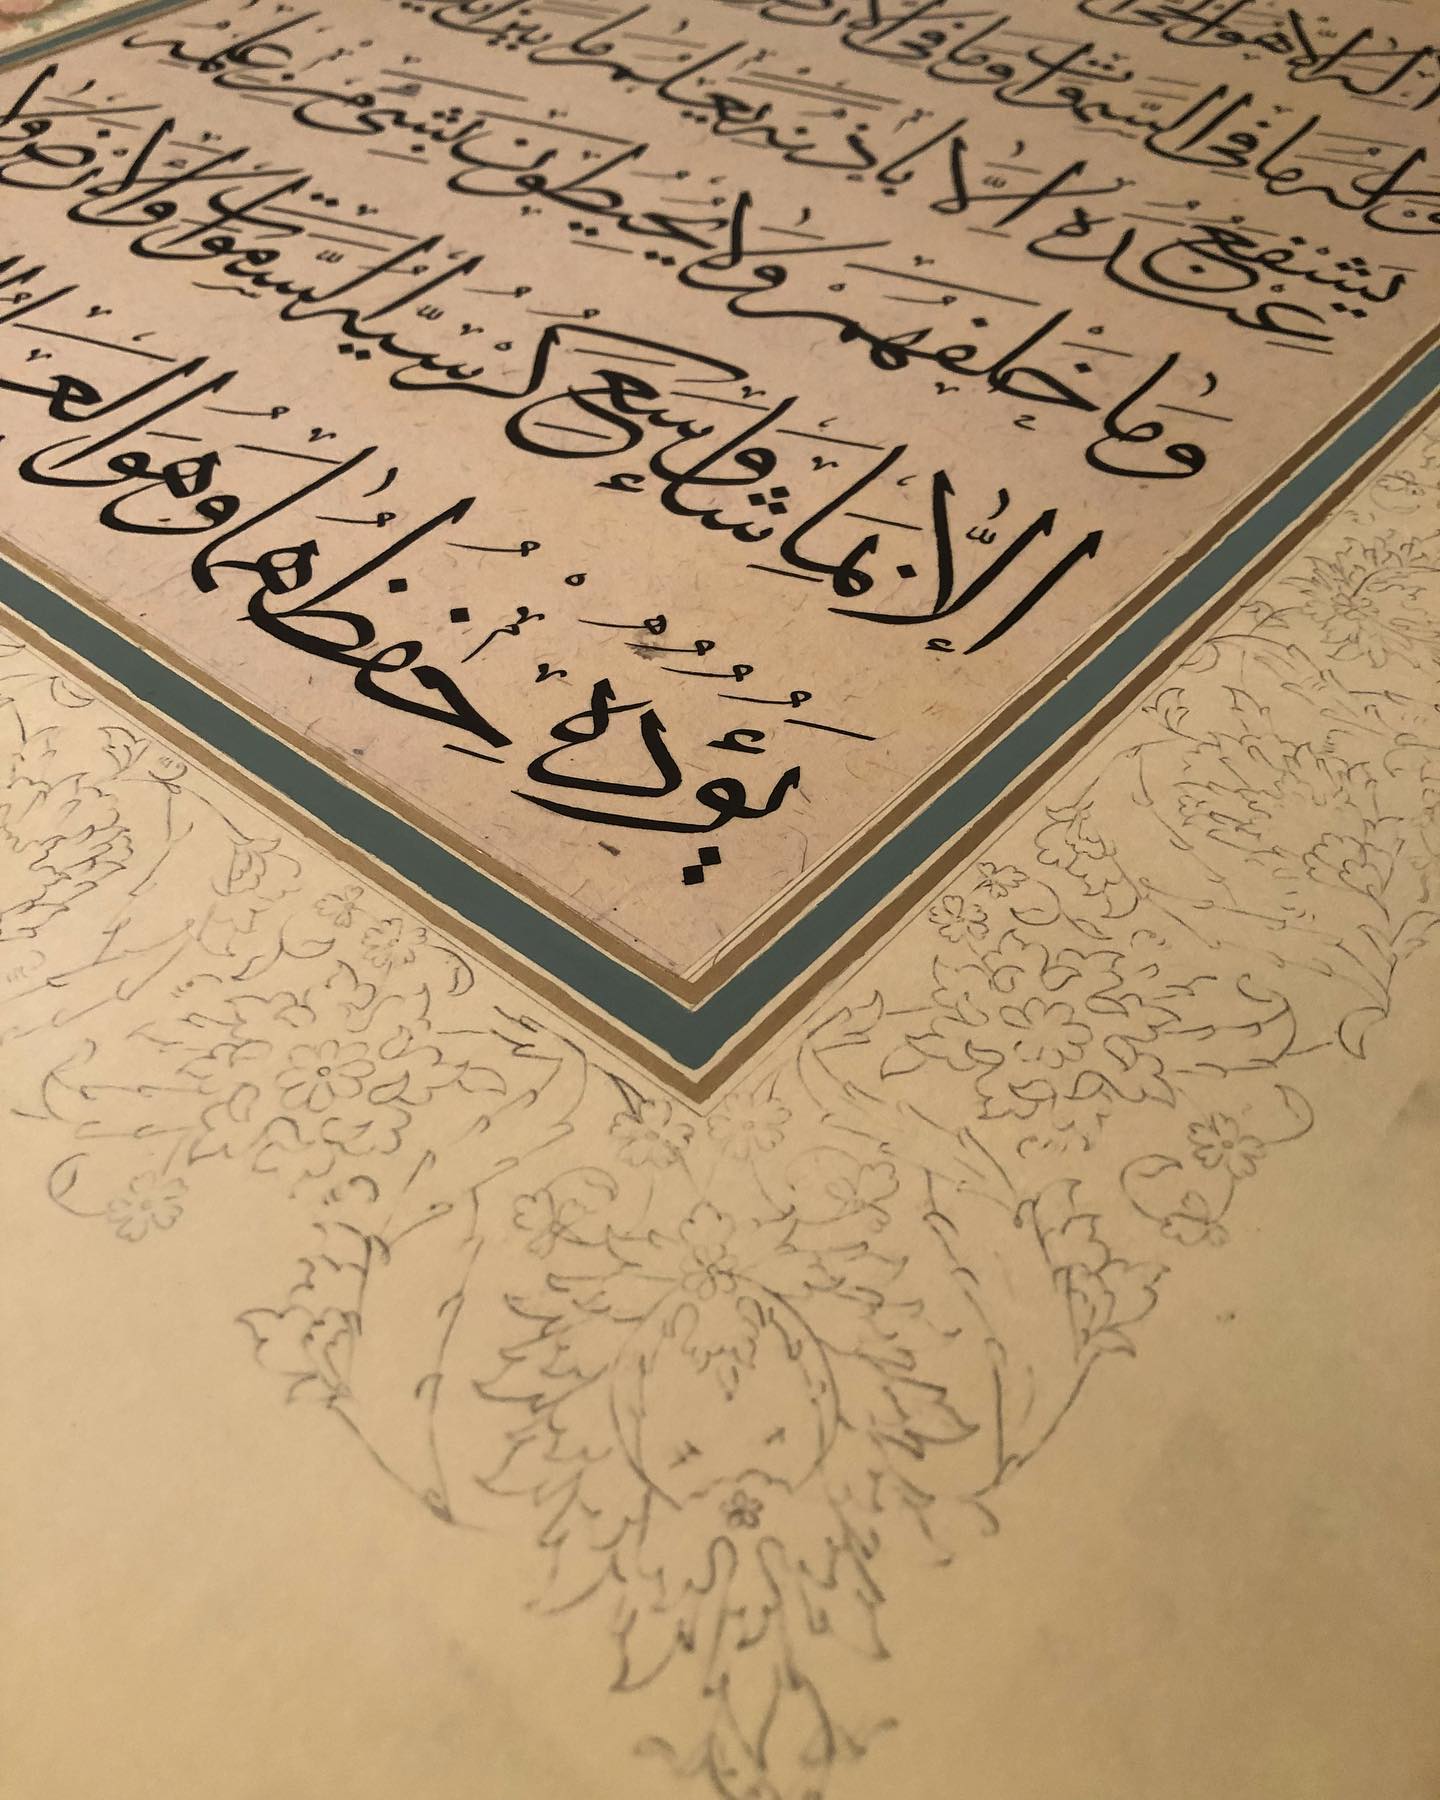 إله إلا هو الحي
له ما في السموات وما في الأرض
يشفع عنده إلا بإذنه يعلم ما بين أيد
وما خلفهم ولا يحيطون بشيء من علمه
إلا بما شاء وسع كرسيه السموات والأرض ولا
يؤده حفظهما وهو العلـ